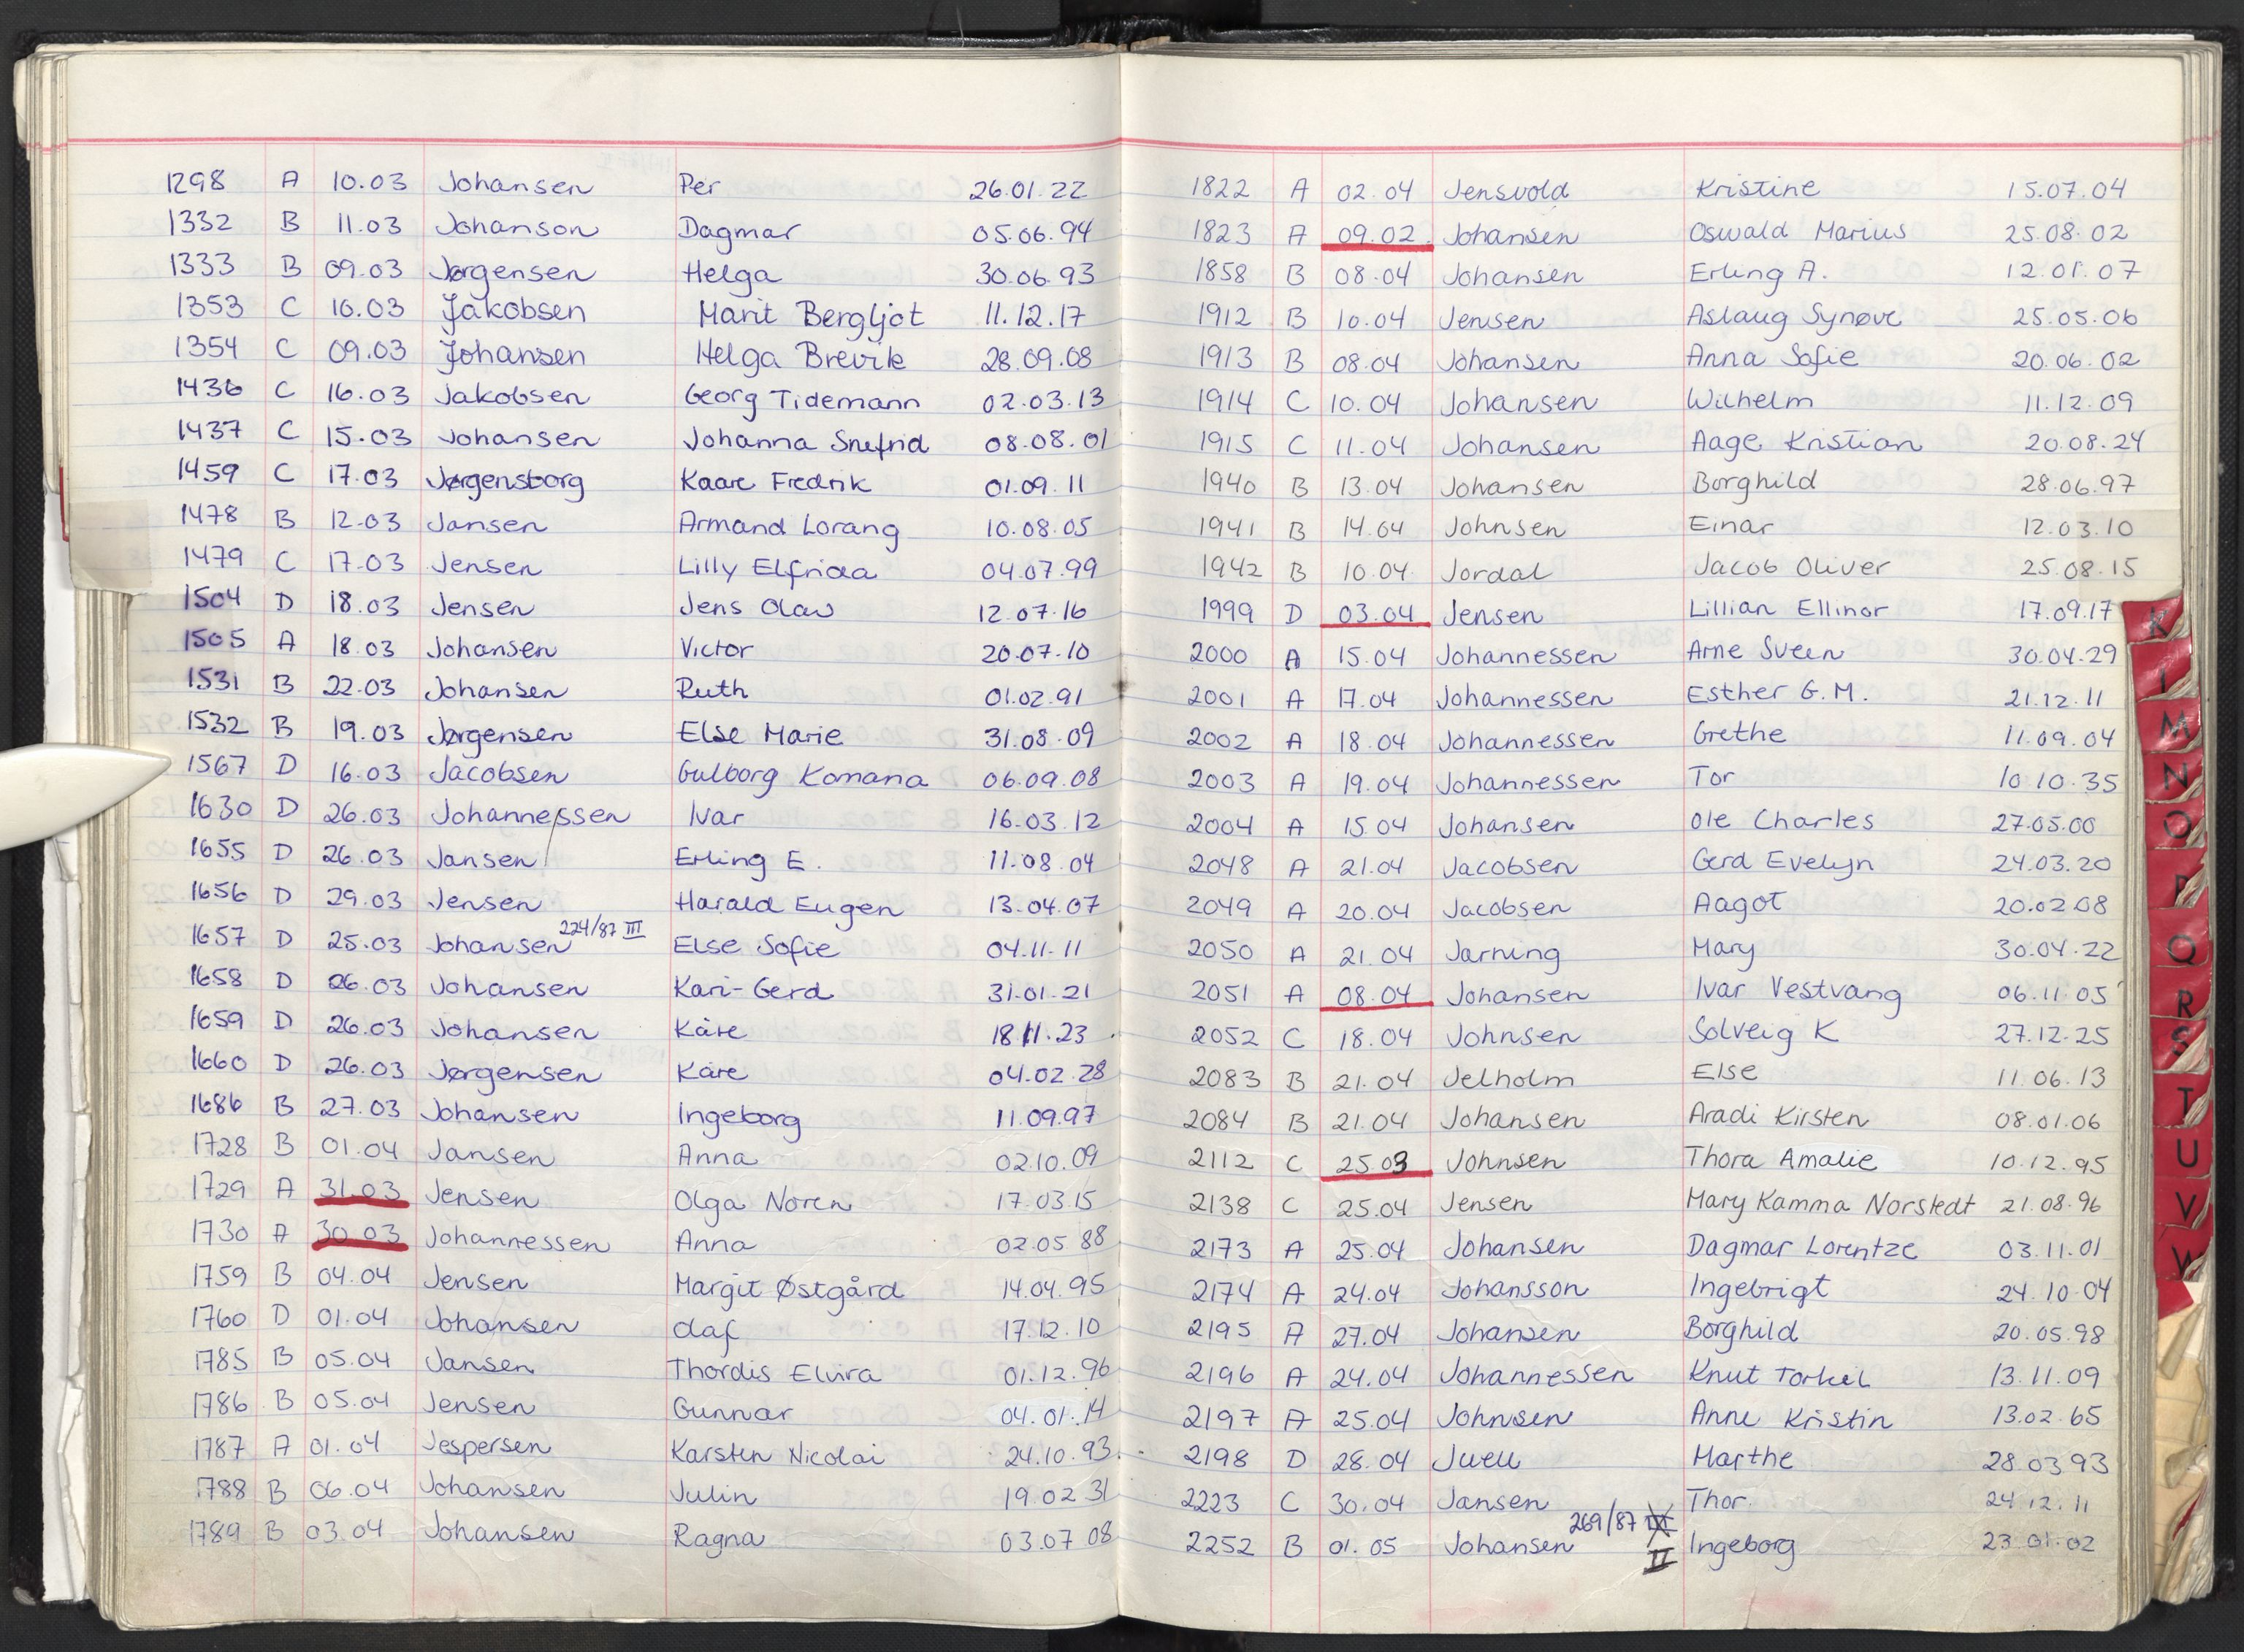 1298 A 10.03 Johansen Per 26.01.22
1332 B 11.03 Johanson Dagmar 05.06.94
1333 B 09.03 Jørgensen Helga 30.06.93
1353 C 10.03 Jakobsen Marit Bergljot 11.12.17
1354 C 09.03 Johansen Helga Brevik 28.09.08
1436 C 16.03 Jakobsen Georg Tidemann 02.03.13
1437 C 15.03 Johansen Johanna Snefrid 08.08.01
1459 C 17.03 Jørgensborg Kaare Fredrik 01.09.11
1478 B 12.03 Jansen Armand Lorang 10.08.05
1479 C 17.03 Jensen Lilly Elfrida 04.07.99
1504 D 18.03 Jensen Jens Olav 12.07.16
1505 A 18.03 Johansen Victor 20.07.10
1531 B 22.03 Johansen Ruth 01.02.91
1532 B 19.03 Jørgensen Else Marie 31.08.09
1567 D 16.03 Jacobsen Gulborg Komana 06.09.08
1630 D 26.03 Johannessen Ivar 16.03.12
1655 D 26.03 Jansen Erling E. 11.08.04
1656 D 29.03 Jensen Harald Eugen 13.04.07
1657 D 25.03 Johansen 224/87 III Else Sofie 04.11.11
1658 D 26.03 Johansen Kari-Gerd 31.01.21
1659 D 26.03 Johansen Kåre 18.11.23
1660 D 26.03 Jørgensen Kåre 04.02.28
1686 B 27.03 Johansen Ingeborg 11.09.97
1728 B 01.04 Jansen Anna 02.10.09
1729 A 31.03 Jensen Olga Noren 17.03.15
1730 A 30.03 Johannessen Anna 02.05.88
1759 B 04.04 Jensen Margit Østgård 14.04.95
1760 D 01.04 Johansen Olaf 17.12.10
1785 B 05.04 Jansen Thordis Elvira 01.12.96
1786 B 05.04 Jensen Gunnar 04.01.14
1787 A 01.04 Jespersen Karsten Nicolai 24.10.93
1788 B 06.04 Johansen Julin 19.02.31
1789 B 03.04 Johansen Ragna 03.07.08
1822 A 02.04 Jensvold Kristine 15.07.04
1823 A 09.02 Johansen Oswald Marius 25.08.02
1858 B 08.04 Johansen Erling A. 12.01.07
1912 B 10.04 Jensen Aslaug Synøve 25.05.06
1913 B 08.04 Johansen Anna Sofie 20.06.02
1914 C 10.04 Johansen Wilhelm 11.12.09
1915 C 11.04 Johansen Aage Kristian 20.08.24
1940 B 13.04 Johansen Borghild 28.06.97
1941 B 14.04 Johnsen Einar 12.03.10
1942 B 10.04 Jordal Jacob Oliver 25.08.15
1999 D 03.04 Jensen Lillian Ellinor 17.09.17
2000 A 15.04 Johannessen Arne Sveen 30.04.29
2001 A 17.04 Johannessen Esther G.M. 21.12.11
2002 A 18.04 Johannessen Grethe 11.09.04
2003 A 19.04 Johannessen Tor 10.10.35
2004 A 15.04 Johansen Ole Charles 27.05.00
2048 A 21.04 Jacobsen Gerd Evelyn 24.03.20
2049 A 20.04 Jacobsen Aagot 20.02.08
2050 A 21.04 Jarning Mary 30.04.22
2051 A 08.04 Johansen Ivar Vestvang 06.11.05
2052 C 18.04 Johnsen Solveig K 27.12.25
2083 B 21.04 Jelholm Else 11.06.13
2084 B 21.04 Johansen Aradi Kirsten 08.01.06
2112 C 25.03 Johnsen Thora Amalie 10.12.95
2138 C 25.04 Jensen Mary Kamma Norstedt 21.08.96
2173 A 25.04 Johansen Dagmar Lorentze 03.11.01
2174 A 24.04 Johansson Ingebrigt 24.10.04
2195 A 27.04 Johansen Borghild 20.05.98
2196 A 24.04 Johannessen Knut Torkil 13.11.09
2197 A 25.04 Johnsen Anne Kristin 13.02.65
2198 D 28.04 Juell Marthe 28.03.93
2223 C 30.04 Jansen Thor 24.12.11
2252 B 01.05 Johansen 269/87 II Ingeborg 23.01.02
K
L
M
N
O
P
Q
R
S
T
U
V
W